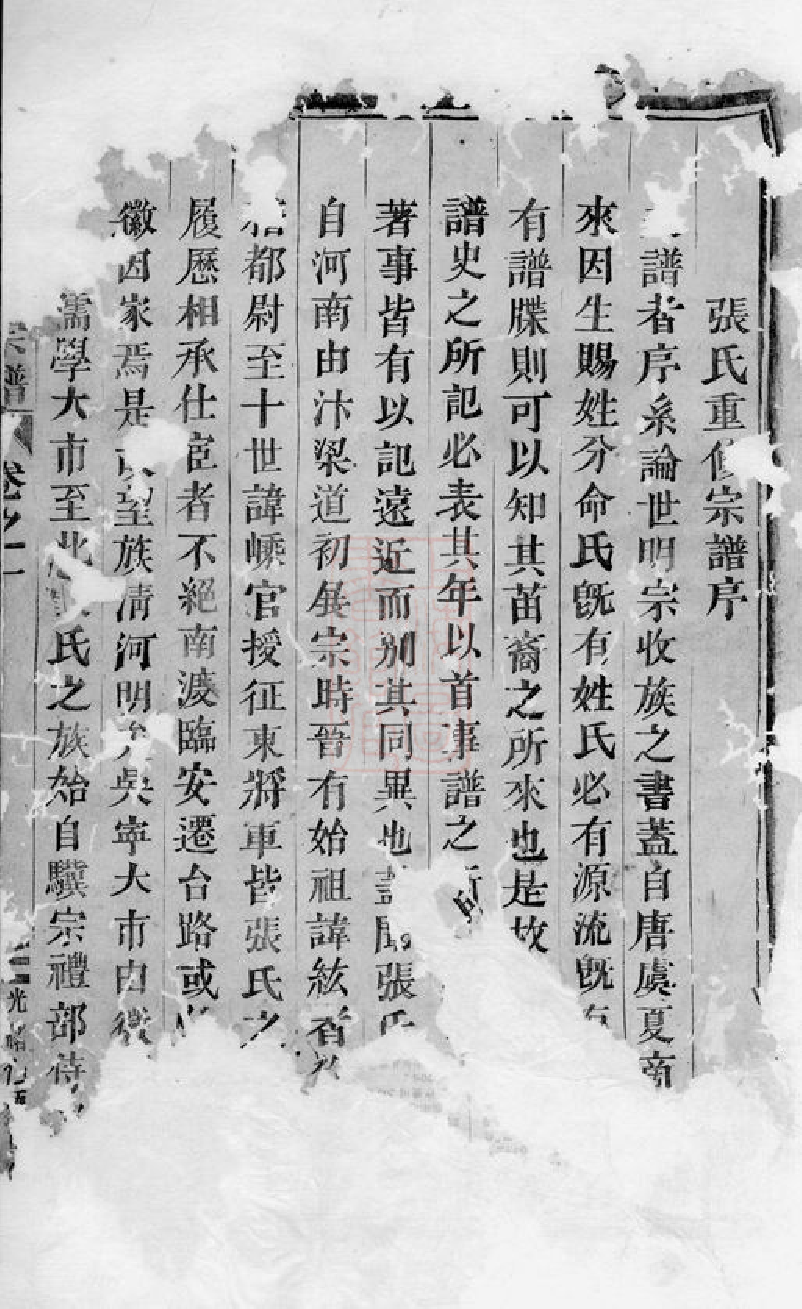 張氏重修宗譜序
譜者序系論世明宗收族之書蓋自唐虞夏商
來因生賜姓分命氏旣有姓氏必有源流旣有
有譜牒則可以知其苗裔之所來也是故
譜史之所記必表其年以首事譜之所
著事皆有以記遠近而別其同異也蓋聞張氏
自河南由汴梁道初吳宗時晉有始祖諱絃者
都尉至十世諱嵊官授征東將軍皆張氏之
履歷相承仕宦者不絕南渡臨安遷台路或
徽因家焉是望族淸河明矣吳寧大市由徽
儒學大市至北張氏之族始自驥宗禮部侍
宗譜 卷之一
光緒